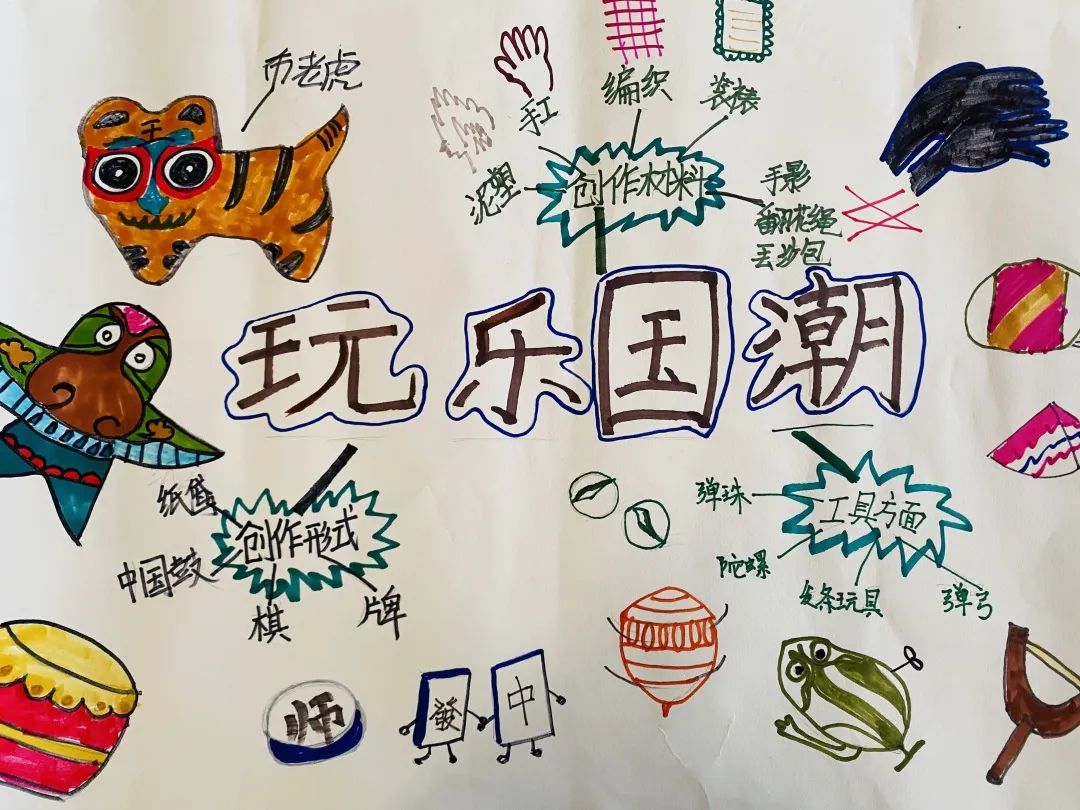 布老虎
王
手工
编织
装裱
泥塑
创作材料
手影
翻花绳
丢沙包
玩乐国潮
纸鸢
创作形式
中国鼓
棋
牌
弹珠
工具方面
陀螺
发条玩具
弹弓
师
發
中